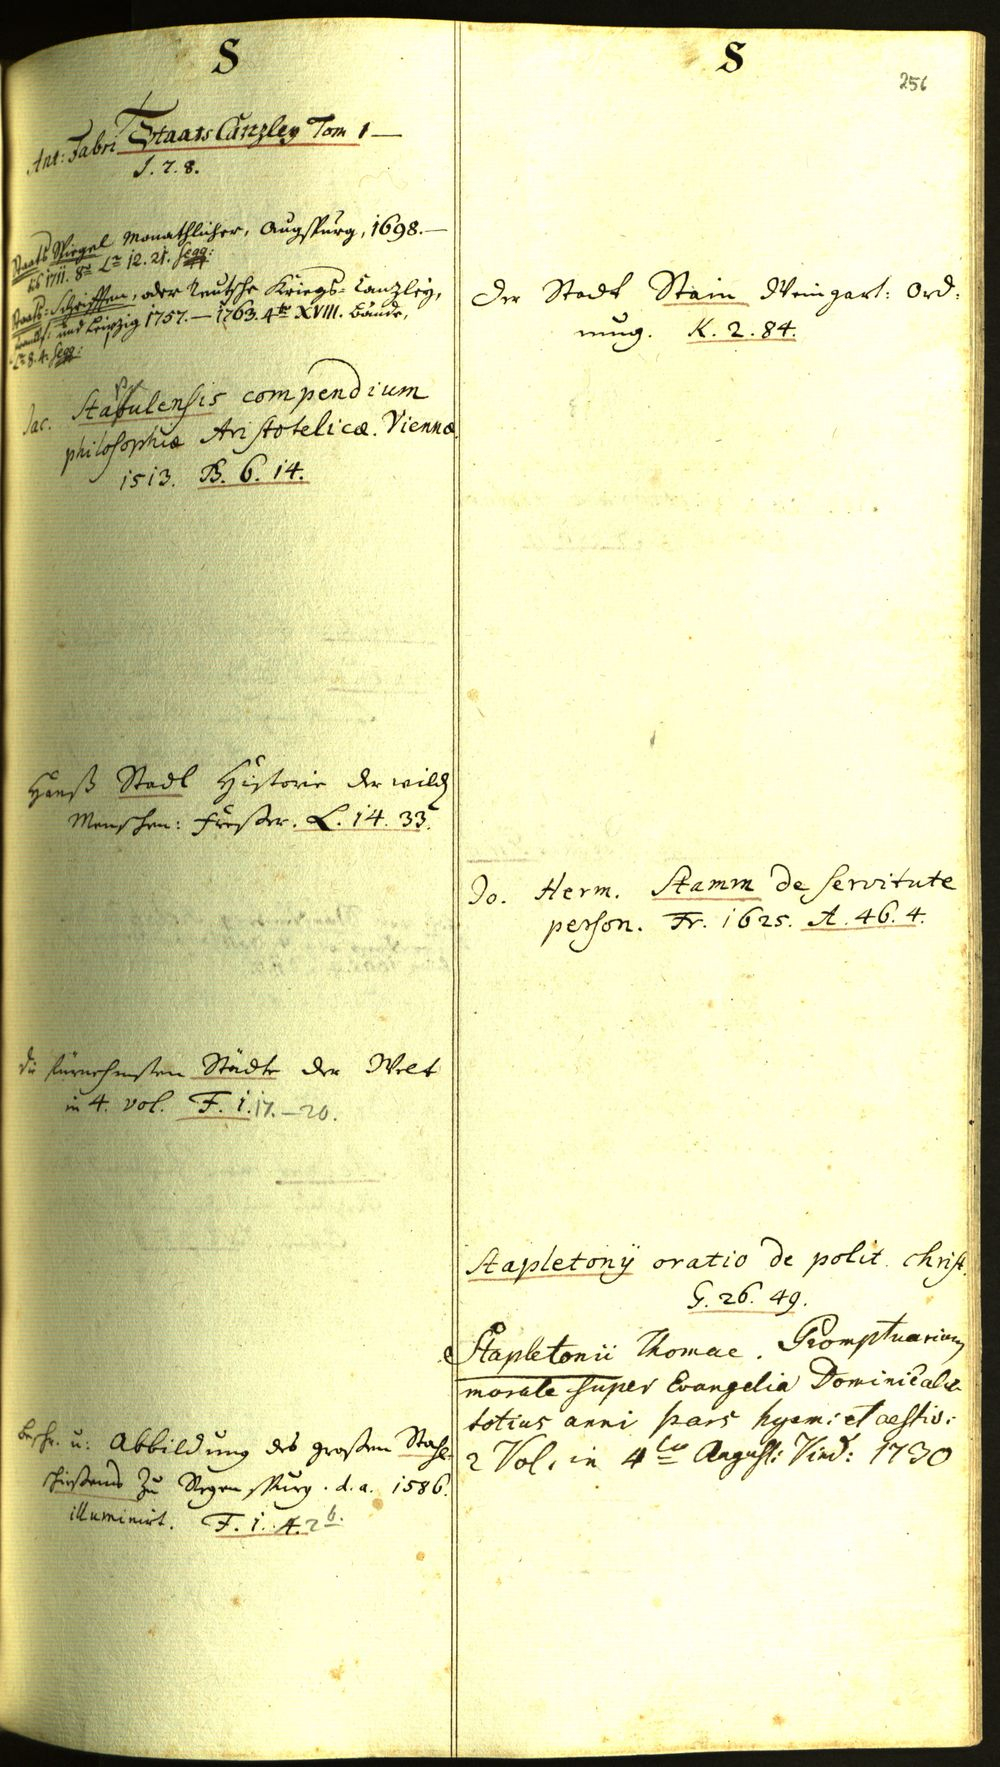 S
Ant: Fabri Staats Canzley Tom 1 —
J. 7. 8.
Staats Spiegel Monathlicher, Augspurg, 1698. —
bis 1711. 8vo Lra 12. 21. seqq:
Staats-Schrifften, oder Teutsche Kriegs-Canzley,
Franckf: und Leipzig 1757. — 1763. 4to XVIII. Bände,
Lra 8. 4. seqq:
Jac. Stabulensis compendium
philosophiæ Aristotelicæ. Viennæ
1513. B. 6. 14.
Hanß Stadl Historie der wild
Menschen: Fresser. L. 14. 33.
die fürnehmsten Städte der Welt
in 4. vol. F. 1. 17. – 20.
Beschr. u: Abbildung des grossen Stahl
schiessens zu Regenspurg. d. a. 1586.
illuminirt. F. 1. A. 2 b.
S
256
Der Stadt Stain Weingart: Ord:
nung. K. 2. 84.
Jo. Herm. Stamm de servitute
person. Fr. 1625. A. 46. 4.
Stapletonij oratio de polit. Christ.
G. 26. 49.
Stapletonii Thomae. Promptuarium
morale super Evangelia Dominicalia
totius anni pars hyem: et aestiv:
2 Vol. in 4to August: Vind: 1730